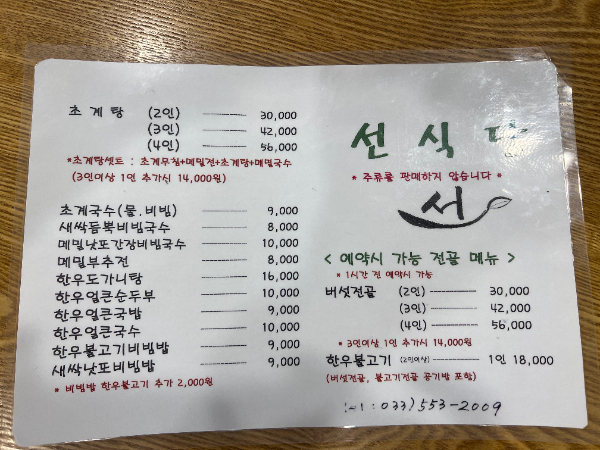 초계탕 (2인) 30,000
(3인) 42,000
(4인) 56,000
*초계탕셋트 : 초계무침+메밀전+초계탕+메밀국수
(3인이상 1인 추가시 14,000원)
초계국수(물.비빔) 9,000
새싹등복비빔국수 8,000
메밀낫포간장비빔국수 10,000
메밀부추전 8,000
한우도가니탕 16,000
한우얼큰순두부 10,000
한우얼큰국밥 9,000
한우얼큰국수 10,000
한우불고기비빔밥 9,000
새싹낫포비빔밥 9,000
* 비빔밥 한우불고기 추가 2,000원
선식당
* 주류를 판매하지 않습니다 *
서
< 예약시 가능 전골 메뉴 >
* 1시간 전 예약시 가능
버섯전골 (2인) 30,000
(3인) 42,000
(4인) 56,000
* 3인이상 1인 추가시 14,000원
한우불고기 (2인이상) 1인 18,000
(버섯전골, 불고기전골 공기밥 포함)
: 033)553-2009